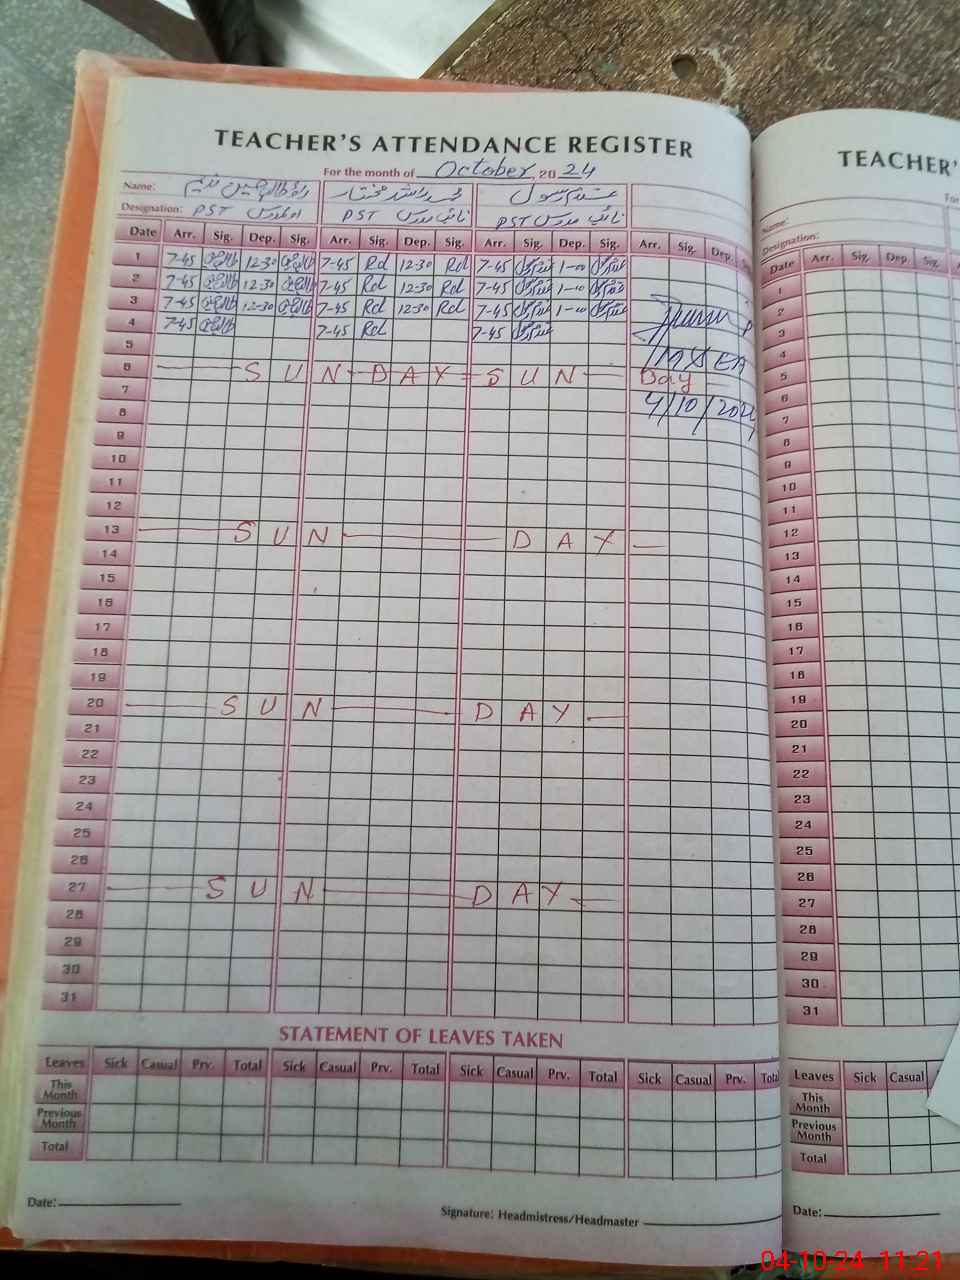 TEACHER'S ATTENDANCE REGISTER
For the month of October, 2024
Name: محمد راشد مختار
Designation: PST PST نائب مدرس PST نائب مدرس
Date Arr. Sig. Dep. Sig. Arr. Sig. Dep. Sig. Arr. Sig. Dep. Sig. Arr. Sig. Dep.
1 7-45 12-30 7-45 Rd 12-30 Rd 7-45 1-00
2 7-45 12-30 7-45 Rd 12-30 Rd 7-45 1-00
3 7-45 12-30 7-45 Rd 12-30 Rd 7-45 1-00
4 7-45 7-45 Rd 7-45
5
6 SUN DAY SUN Day
7 4/10/202
8
9
10
11
12
13 SUN DAY
14
15
16
17
18
19
20 SUN DAY
21
22
23
24
25
26
27 SUN DAY
28
29
30
31
STATEMENT OF LEAVES TAKEN
Leaves Sick Casual Prv. Total Sick Casual Prv. Total Sick Casual Prv. Total Sick Casual Prv. Total
This Month
Previous Month
Total
Date:
Signature: Headmistress/Headmaster
TEACHER'
For
Name:
Designation:
Date Arr. Sig. Dep. Sig. Arr.
1
2
3
4
5
6
7
8
9
10
11
12
13
14
15
16
17
18
19
20
21
22
23
24
25
26
27
28
29
30
31
Leaves Sick Casual
This Month
Previous Month
Total
Date:
04-10-24 11:21